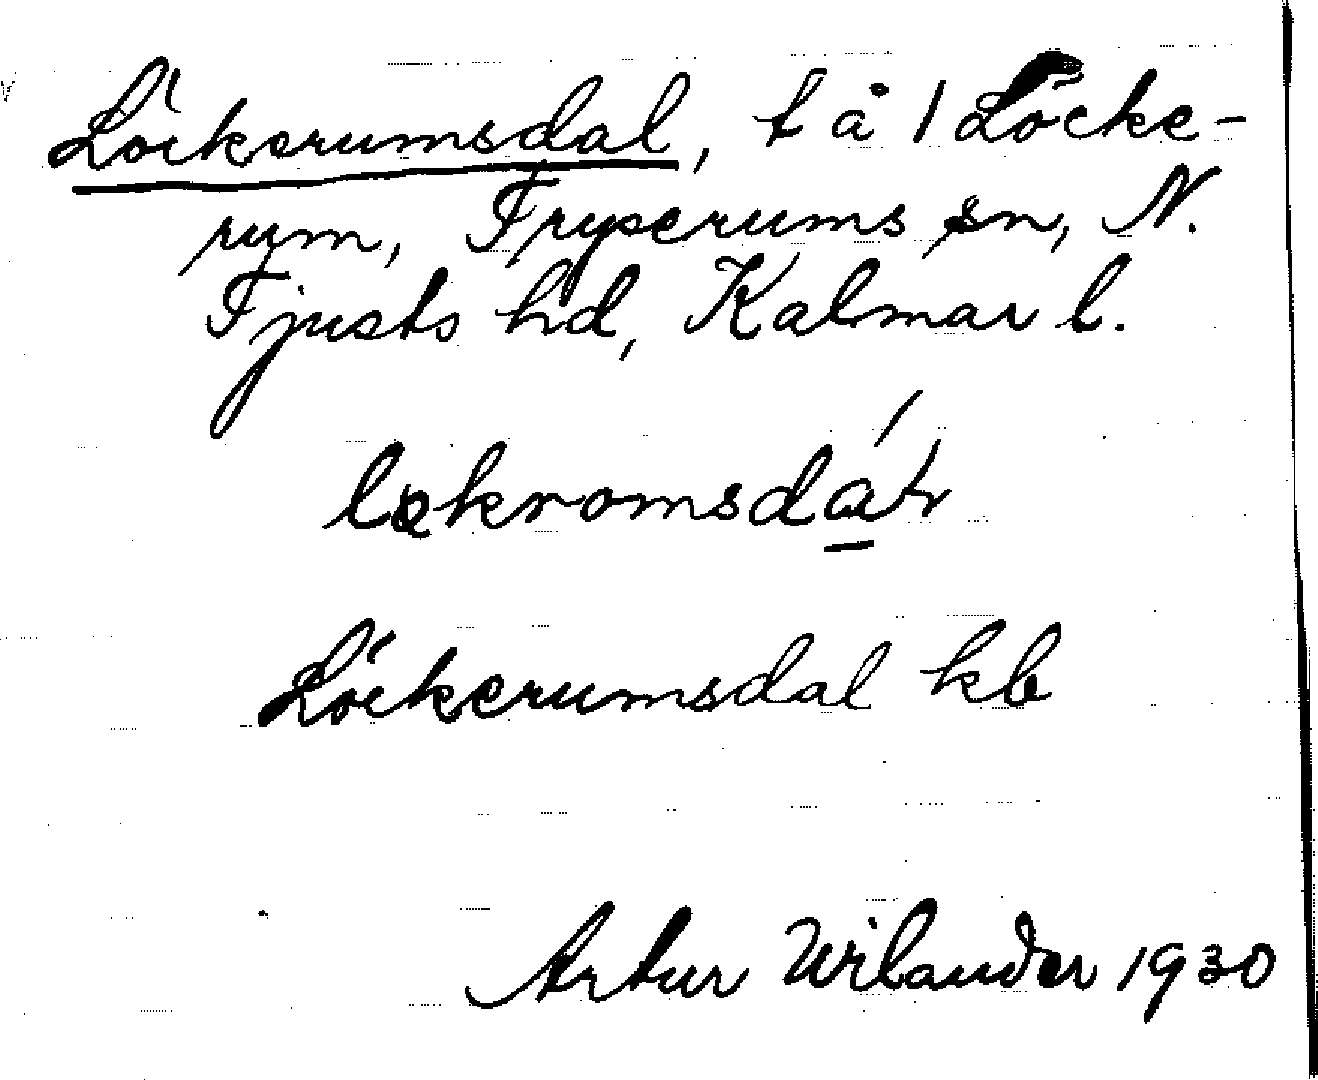 Löckerumsdal, t å 1 Löcke-
rum, Tryserums sn, N.
Tjusts hd, Kalmar l.
Löckerumsdal kb
Artur Wilander 1930